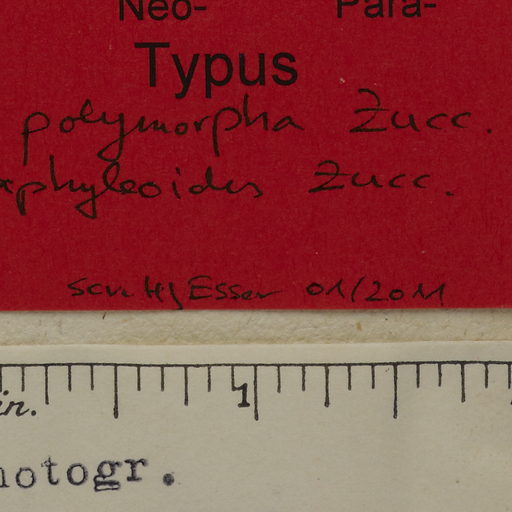 Neo- Para-
Typus
polymorpha Zucc.
phyleoides Zucc.
Esser 01/2011
1
in.
hotogr.